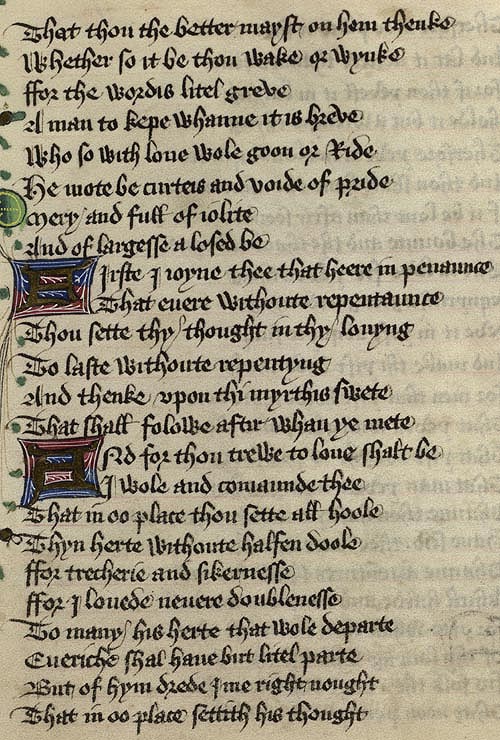 That thou the better mayst on hem thenke
Whether so it be thou wake or wynke
ffor the wordis litel greve
A man to kepe whanne it is breve
Who so with loue wole goon or Ride
He mote be curteis and voide of pride
Mery and full of iolite
And of largesse a losed be
Firste I ioyne thee that heere in penaunce
That euere withoute repentaunce
Thou sette thy thought in thy louyng
To laste withoute repentyng
And thenke vpon thi myrthis swete
That shall folowe aftir whan ye mete
And for thou trewe to loue shalt be
I wole and comaunde thee
That in oo place thou sette all hoole
Thyn herte withoute halfen doole
ffor trecherie and sikernesse
ffor I louede neuere doublenesse
To many his herte that wole departe
Eueriche shal haue but litel parte
But of hym drede I me right nought
That in oo place settith his thought